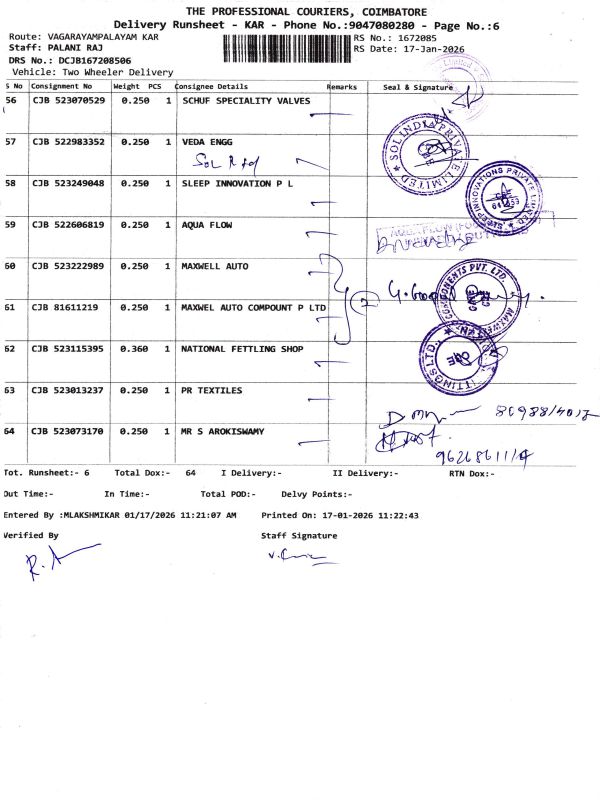 THE PROFESSIONAL COURIERS, COIMBATORE
Delivery Runsheet - KAR - Phone No.:9047080280 - Page No.:6
Route: VAGARAYAMPALAYAM KAR RS No.: 1672085
Staff: PALANI RAJ RS Date: 17-Jan-2026
DRS No.: DCJB167208506
Vehicle: Two Wheeler Delivery
S No Consignment No Weight PCS Consignee Details Remarks Seal & Signature
56 CJB 523070529 0.250 1 SCHUF SPECIALITY VALVES
57 CJB 522983352 0.250 1 VEDA ENGG
SOLINDIA PRIVATE LIMITED
58 CJB 523249048 0.250 1 SLEEP INNOVATION P L
SLEEP INNOVATIONS PRIVATE LIMITED
59 CJB 522606819 0.250 1 AQUA FLOW
60 CJB 523222989 0.250 1 MAXWELL AUTO
COMPONENTS PVT. LTD.
61 CJB 81611219 0.250 1 MAXWEL AUTO COMPOUNT P LTD
2
62 CJB 523115395 0.360 1 NATIONAL FETTLING SHOP
63 CJB 523013237 0.250 1 PR TEXTILES
64 CJB 523073170 0.250 1 MR S AROKISWAMY
Tot. Runsheet:- 6 Total Dox:- 64 I Delivery:- II Delivery:- RTN Dox:-
Out Time:- In Time:- Total POD:- Delvy Points:-
Entered By :MLAKSHMIKAR 01/17/2026 11:21:07 AM Printed On: 17-01-2026 11:22:43
Verified By Staff Signature